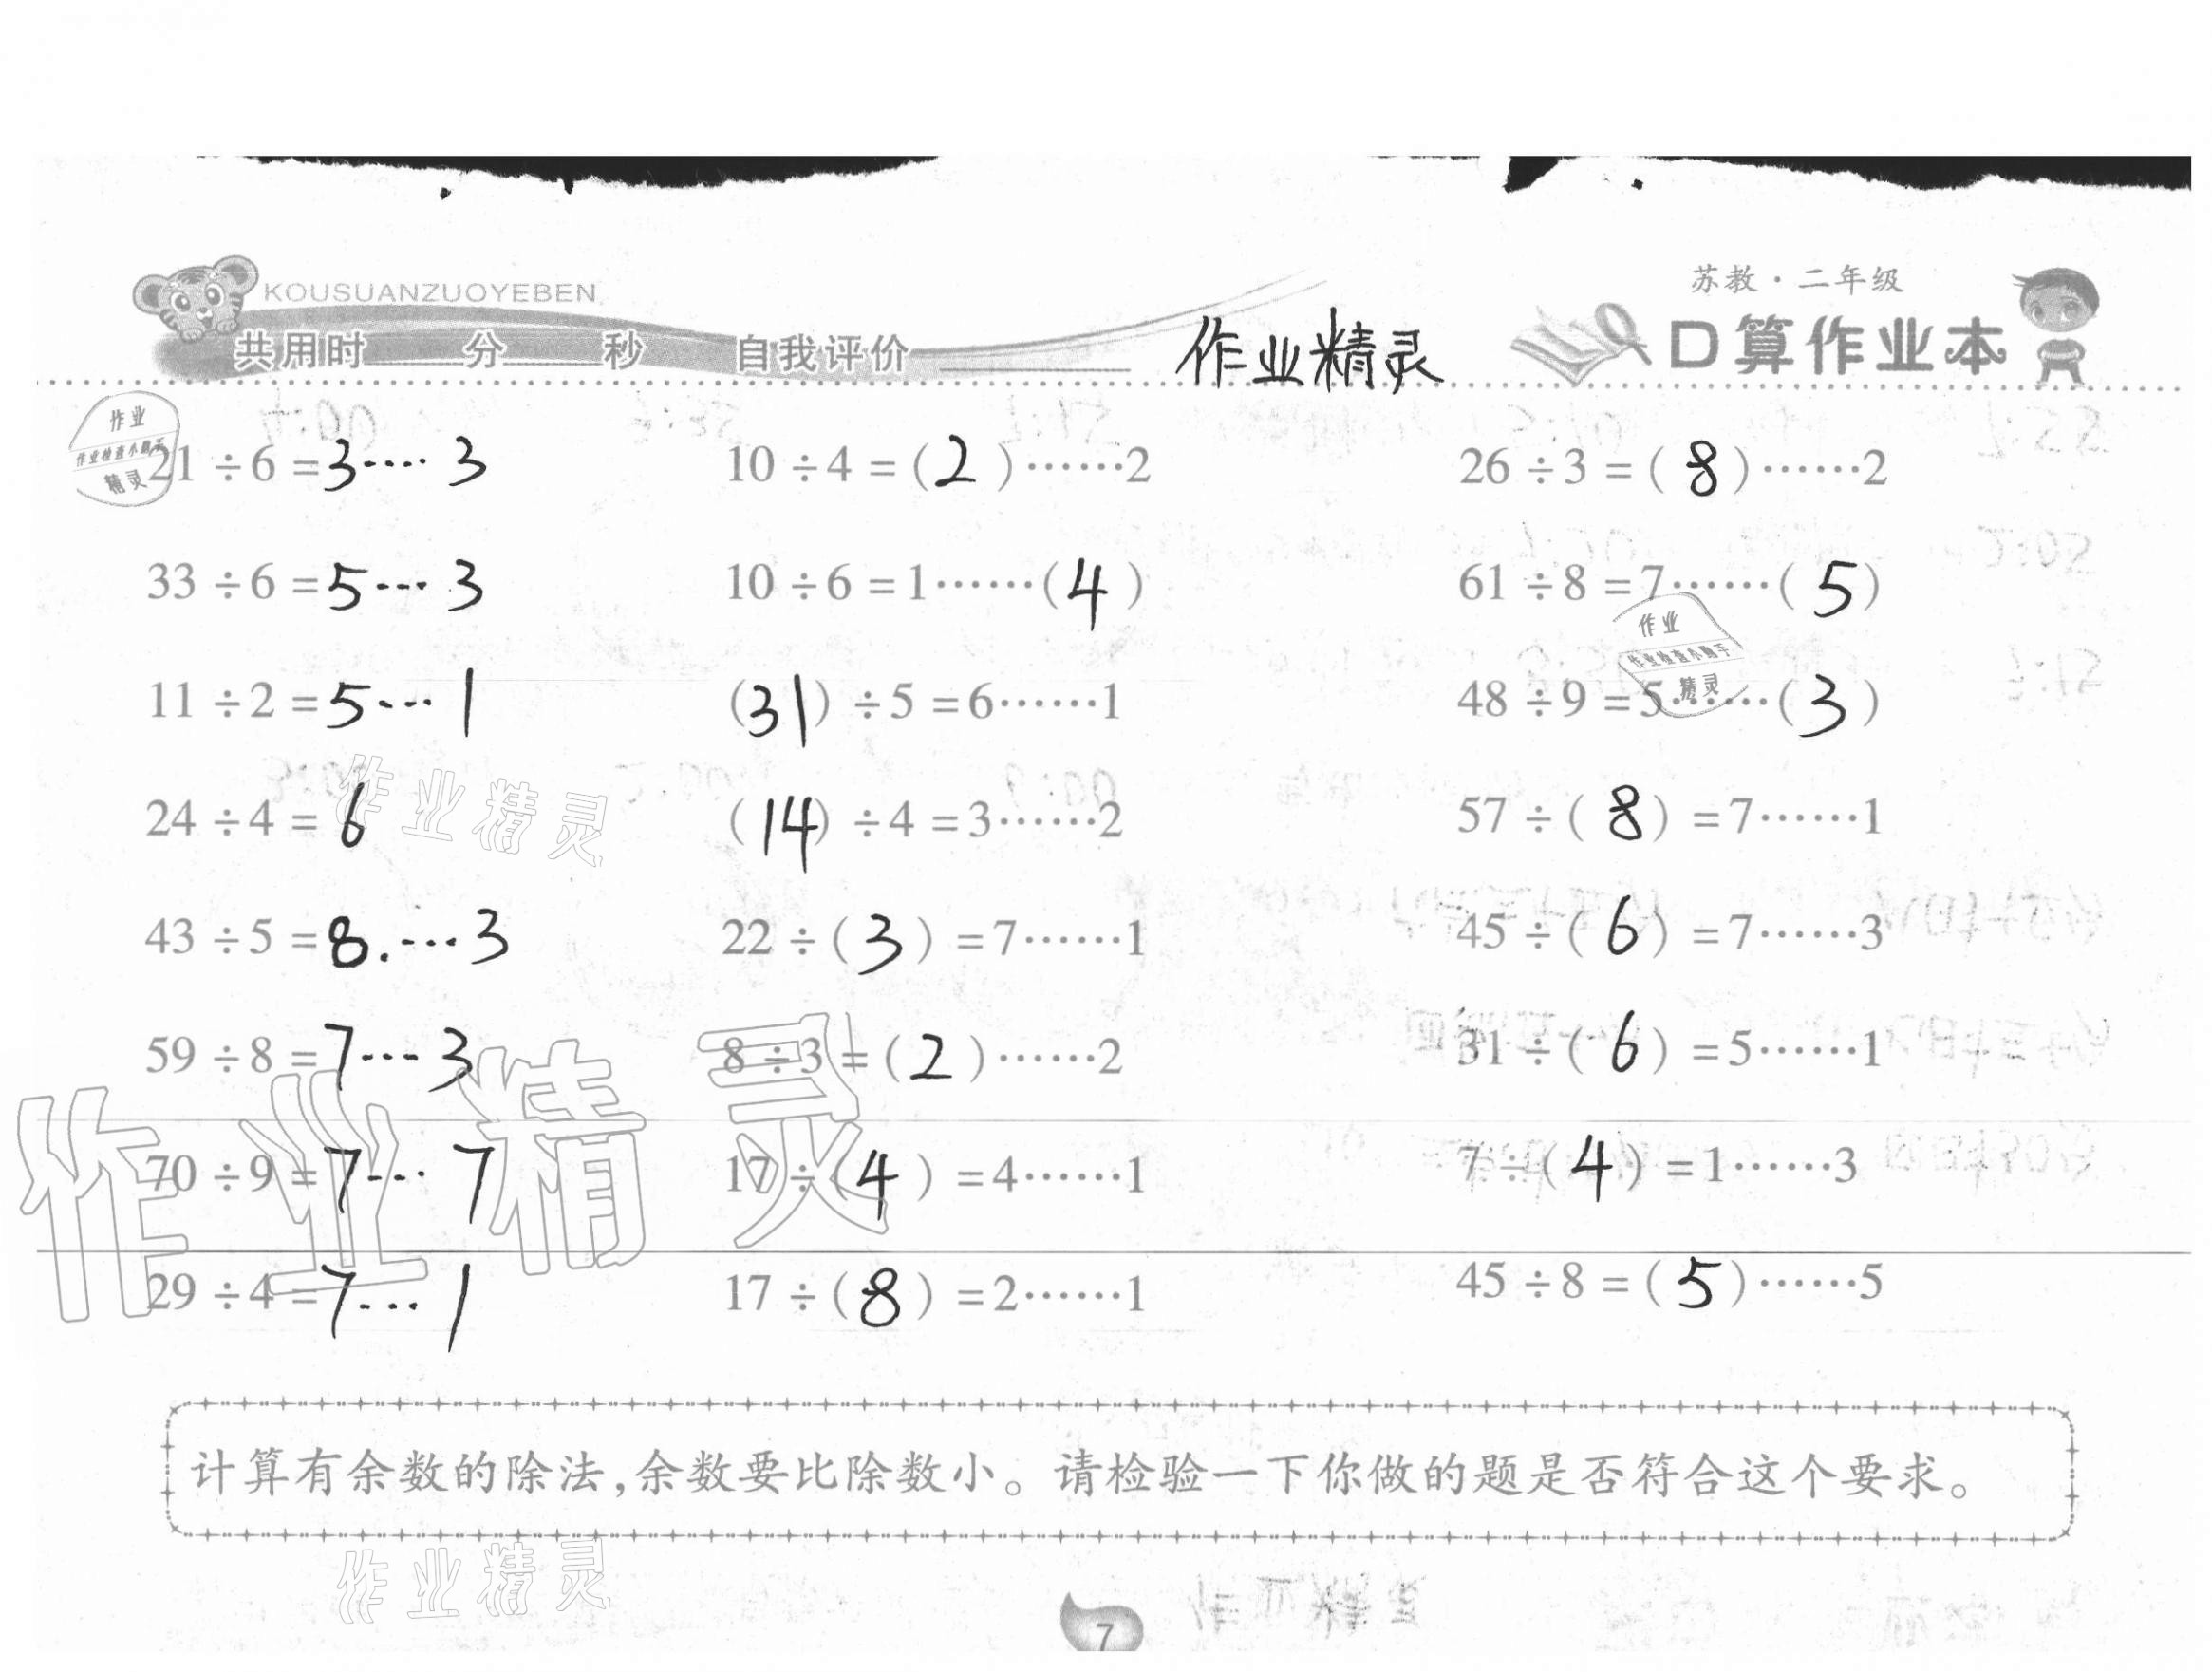 KOUSUANZUOYEBEN
苏教·二年级
共用时____分____秒 自我评价________ 作业精灵 口算作业本
作业
作业检查小助手
精灵
21÷6=3····3 10÷4=(2)……2 26÷3=(8)……2
33÷6=5···3 10÷6=1……(4) 61÷8=7……(5)
作业
作业检查小助手
精灵
11÷2=5···1 (31)÷5=6……1 48÷9=5……(3)
24÷4=6 (14)÷4=3……2 57÷(8)=7……1
作业精灵
43÷5=8.···3 22÷(3)=7……1 45÷(6)=7……3
59÷8=7···3 8÷3=(2)……2 31÷(6)=5……1
作业精灵
70÷9=7···7 17÷(4)=4……1 7÷(4)=1……3
29÷4=7···1 17÷(8)=2……1 45÷8=(5)……5
计算有余数的除法,余数要比除数小。请检验一下你做的题是否符合这个要求。
作业精灵
7
作业精灵